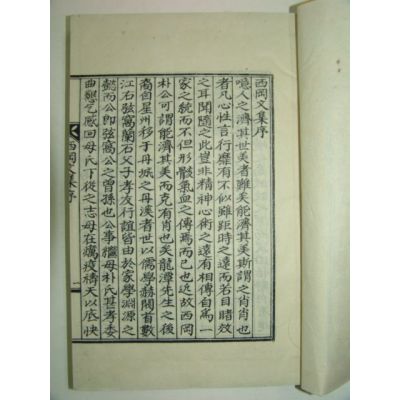 西岡文集序
噫人之濟其世美者難矣能濟其美斯謂之肖肖
者凡心性言行靡有不似雖距時之遠而若目睹效
之耳聞隨之此豈非精神心術之遠有相傳自爲一
家之貌而不但形骸氣血之傳焉而已也近故西岡
朴公可謂能濟其美而克有肖也矣龍潭先生之後
裔自星州移于丹城之丹溪者世以儒學赫閥首數
江右弦窩蘭石父子孝友行誼皆由於家學淵源之
懿而公卽弦窩公之曾孫也公事繼母朴氏甚孝委
曲懇乞感回母氏下從之志母在癘疫禱天以底快
西岡文集序
一